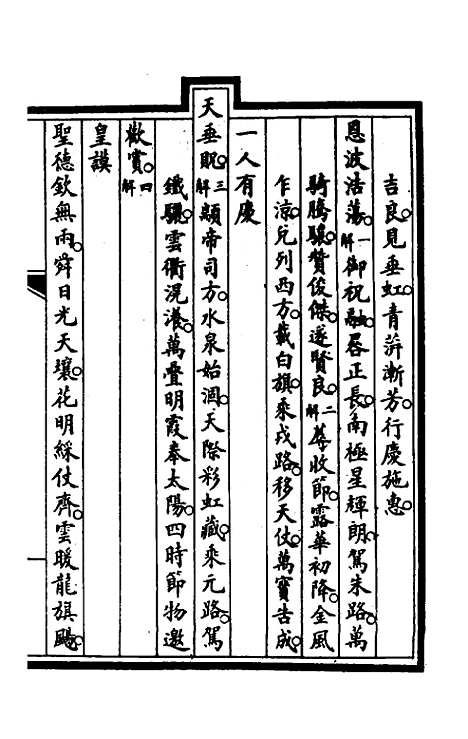 吉良見垂虹青蓱漸芳行慶施惠
恩波浩蕩一解御祝融晷正長南極星輝朗駕朱路萬
騎騰驤贊俊傑遂賢良二解蓐收節露華初降金風
乍涼兌列西方載白旗乘戎路移天仗萬寶告成
一人有慶
天垂貺三解顓帝司方水泉始涸天際彩虹藏乘元路駕
鐵驪雲衢滉瀁萬疊明霞奉太陽四時節物邀
歡賞四解
皇謨
聖德欽無兩舜日光天壤花明綵仗齊雲暖龍旗颺